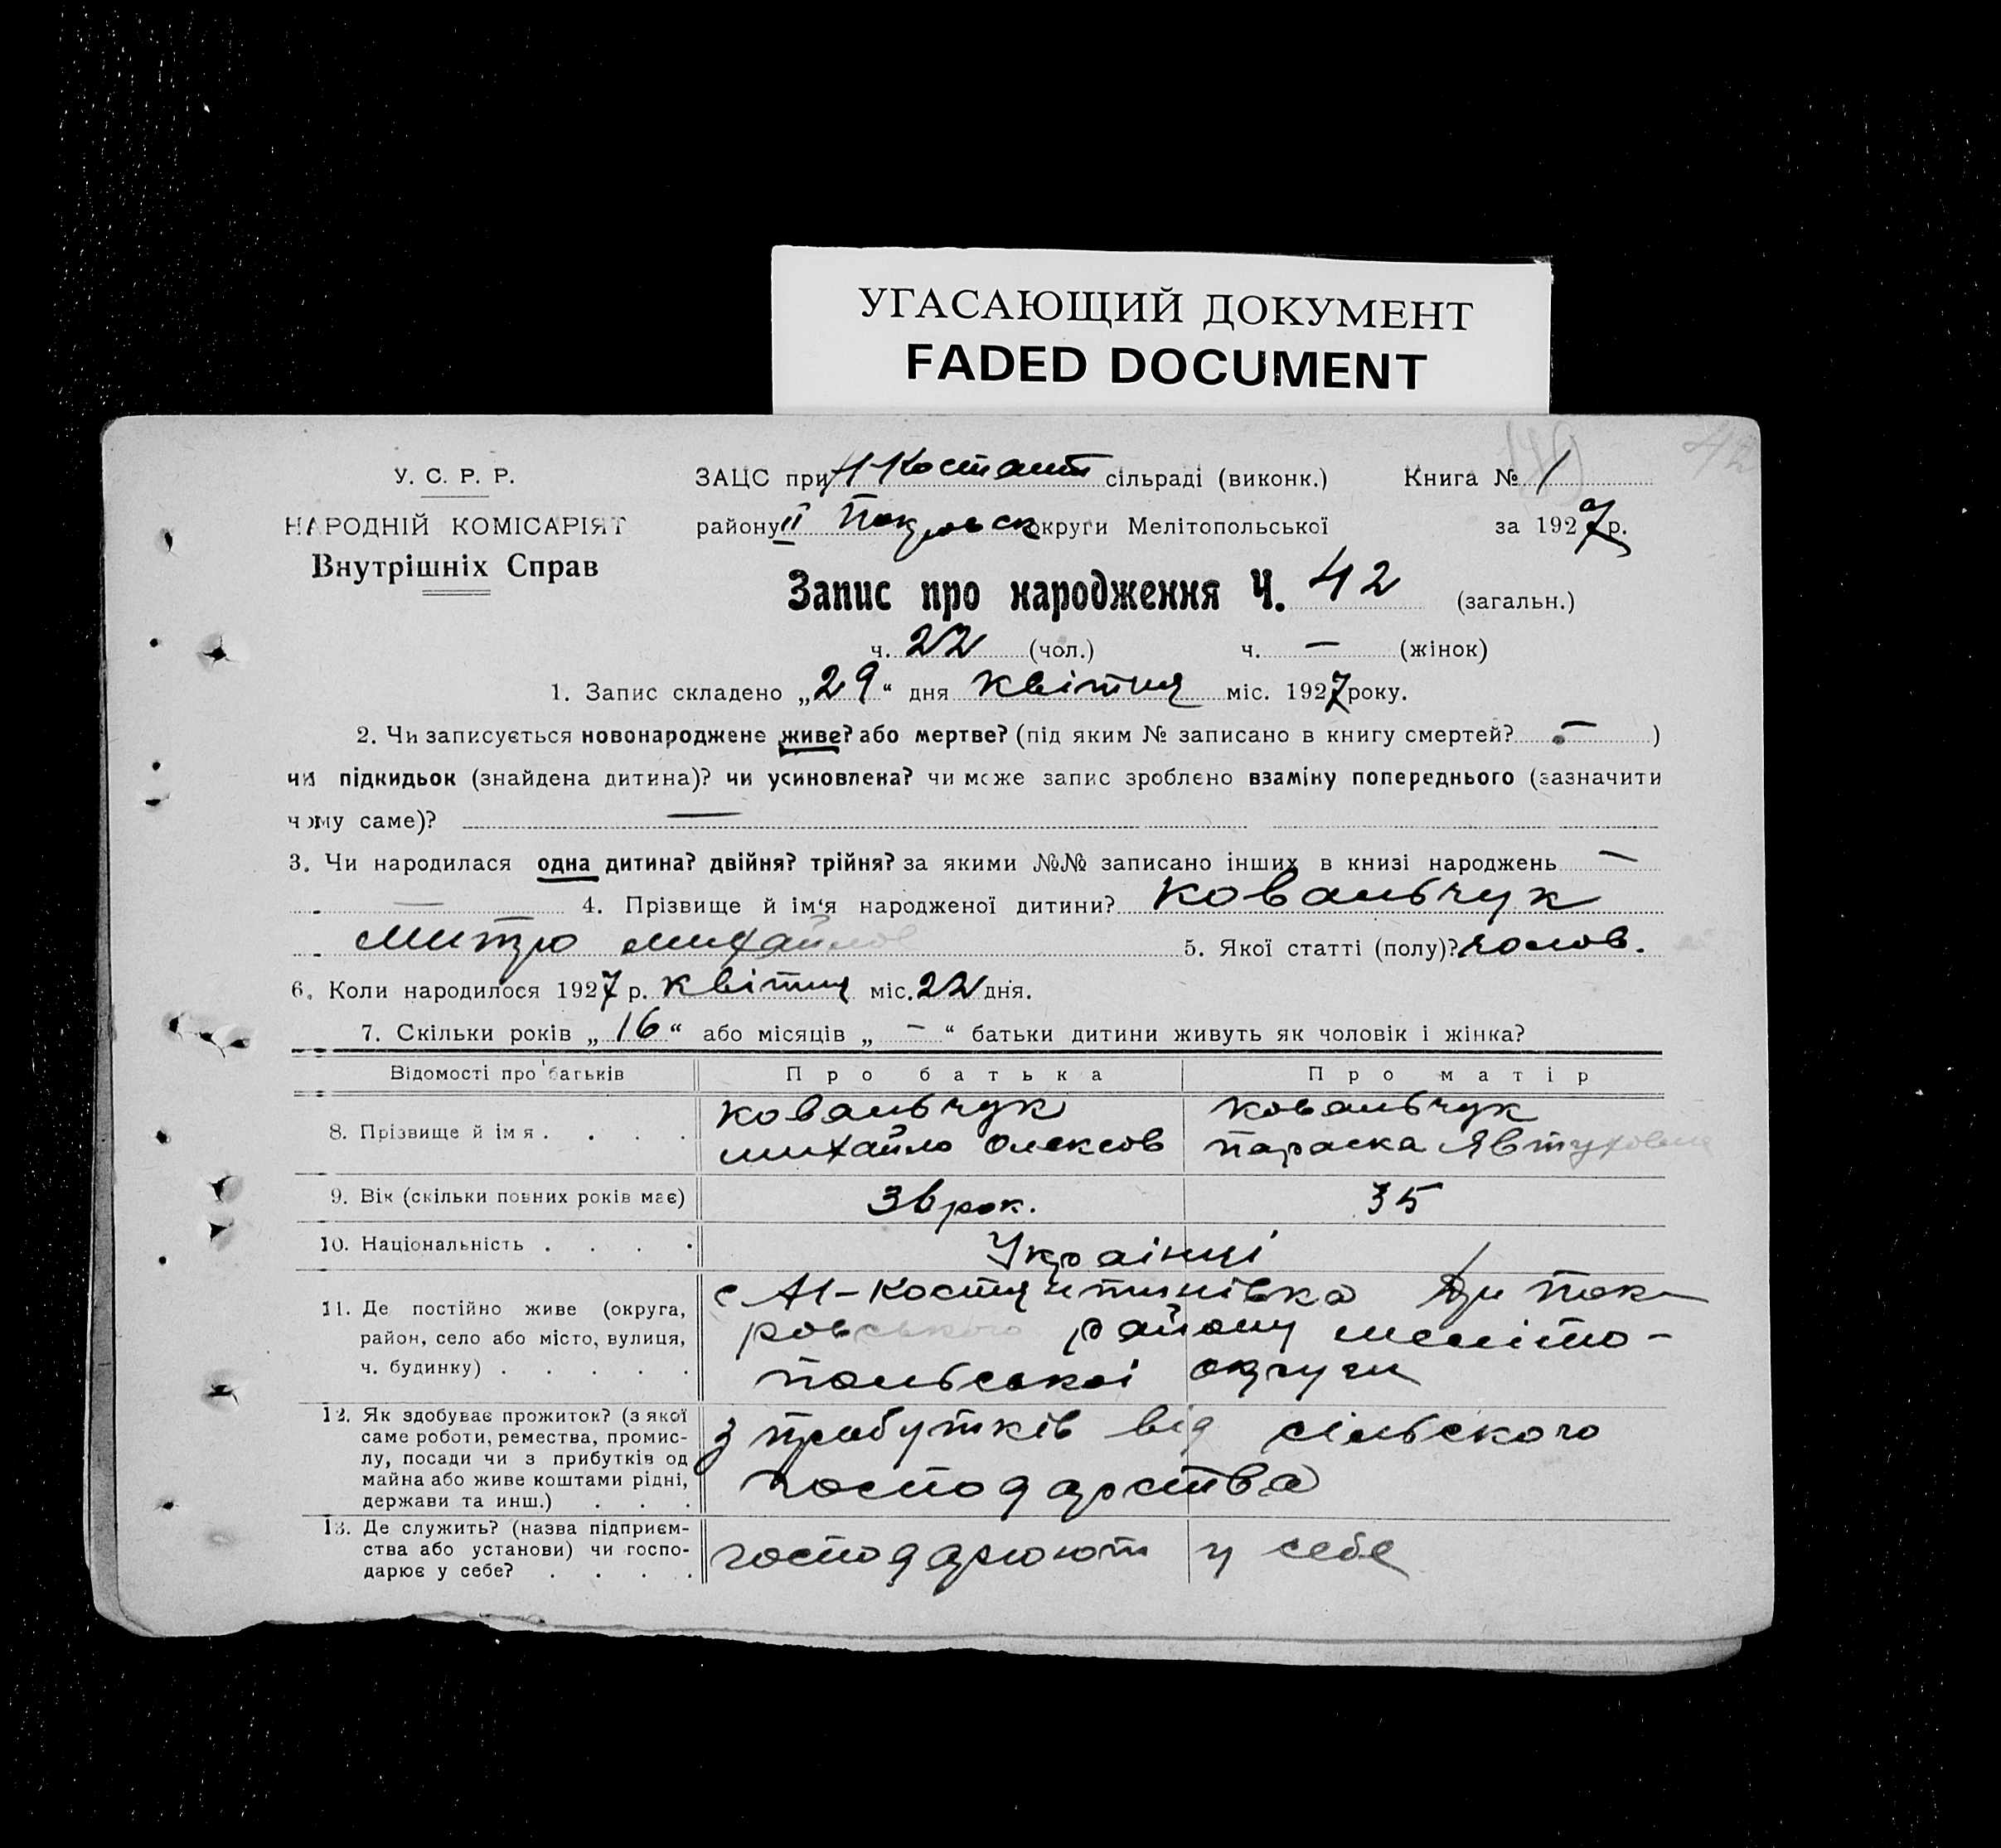 УГАСАЮЩИЙ ДОКУМЕНТ
FADED DOCUMENT
У. С. Р. Р. ЗАЦС при Н-Костянт сільраді (виконк.) Книга № 1 42
НАРОДНІЙ КОМІСАРІЯТ району II Покровськ округи Мелітопольської за 1927 р.
Внутрішніх Справ
Запис про народження Ч. 42 (загальн.)
ч. 22 (чол.) ч. — (жінок)
1. Запис складено „29“ дня квітня міс. 1927 року.
2. Чи записується новонароджене живе? або мертве? (під яким № записано в книгу смертей? — )
чи підкидьок (знайдена дитина)? чи усиновлена? чи може запис зроблено взаміну попереднього (зазначити
чому саме)? —
3. Чи народилася одна дитина? двійня? трійня? за якими №№ записано інших в книзі народжень —
— 4. Прізвище й ім‘я народженої дитини? Ковальчук
Митро Михайлов 5. Якої статті (полу)? чолов.
6. Коли народилося 1927 р. квітня міс. 22 дня.
7. Скільки років „16“ або місяців „ — “ батьки дитини живуть як чоловік і жінка?
Відомості про батьків Про батька Про матір
8. Прізвище й ім‘я . . . . Ковальчук Михайло Олексов Ковальчук Параска Явтуховна
9. Вік (скільки повних років має) 36 рок. 35
10. Національність . . . . Українці
11. Де постійно живе (округа, с Н-Костянтинівка Пок-
район, село або місто, вулиця, ровського району меліто-
ч. будинку) . . . . . польської округи
12. Як здобуває прожиток? (з якої
саме роботи, ремества, промис- з прибутків від сільского
лу, посади чи з прибутків од
майна або живе коштами рідні, господарства
держави та инш.) . . .
13. Де служить? (назва підприєм-
ства або установи) чи госпо- господарюют у себе
дарює у себе? . . . .